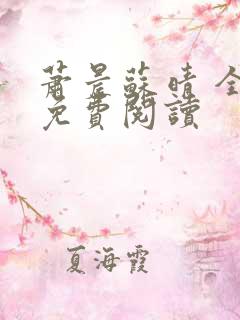 蕭晨蘇晴 全
免費閱讀
夏海霞